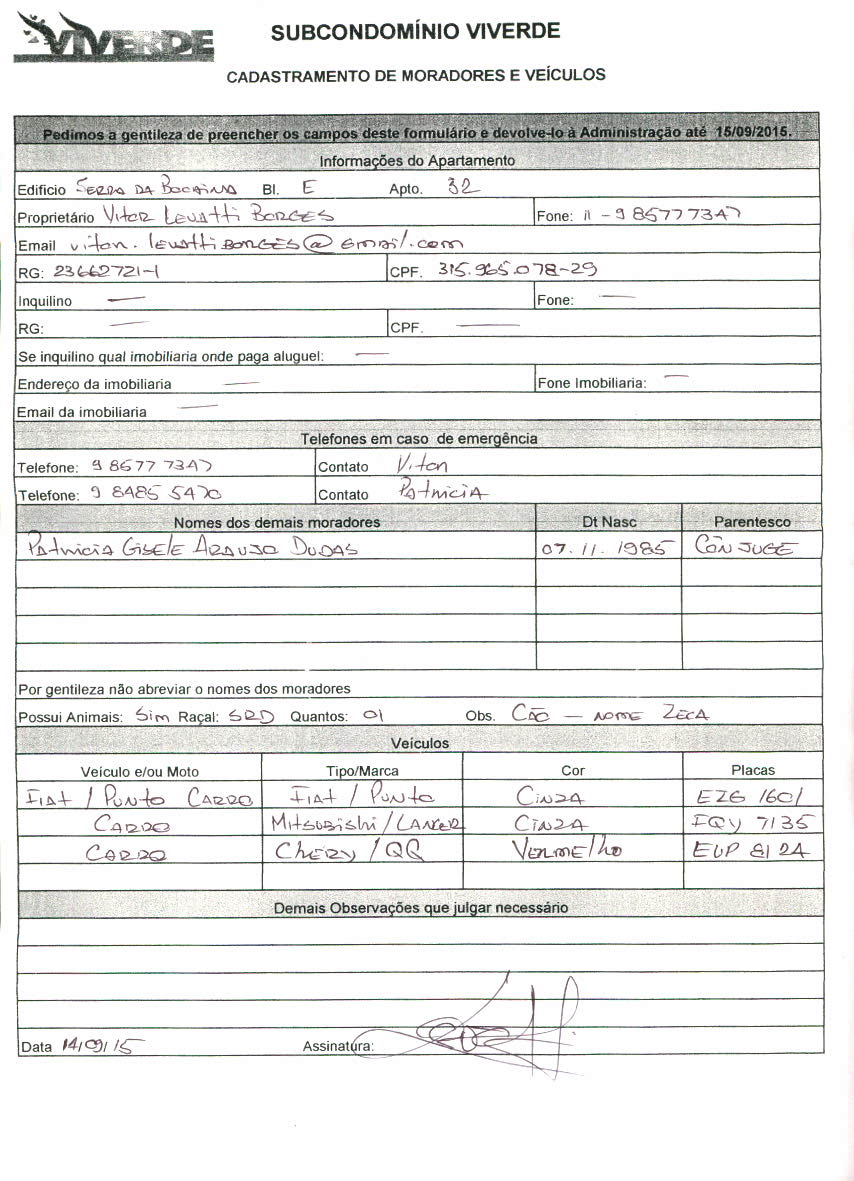 VIVERDE
SUBCONDOMÍNIO VIVERDE
CADASTRAMENTO DE MORADORES E VEÍCULOS
Pedimos a gentileza de preencher os campos deste formulário e devolve-lo à Administração até 15/09/2015.
Informações do Apartamento
Edificio SERRA DA BOCAINA Bl. E Apto. 32
Proprietário Vitor Levatti BORGES Fone: 11 - 9 85777347
Email vitor.levattiBORGES@Gmail.com
RG: 23662721-1 CPF. 315.965.078-29
Inquilino — Fone: —
RG: — CPF. —
Se inquilino qual imobiliaria onde paga aluguel: —
Endereço da imobiliaria — Fone Imobiliaria: —
Email da imobiliaria —
Telefones em caso de emergência
Telefone: 9 8577 7347 Contato Vitor
Telefone: 9 8485 5470 Contato PAtriciA
Nomes dos demais moradores Dt Nasc Parentesco
PAtriciA GisElE ARAUJO DUDAS 07.11.1985 CÔNJUGE
Por gentileza não abreviar o nomes dos moradores
Possui Animais: Sim Raçal: SRD Quantos: 01 Obs. CÃO — NOME ZECA
Veículos
Veículo e/ou Moto Tipo/Marca Cor Placas
FIAt / PUNtO CARRO FIAt / PUNtO CiNZA EZG 1601
CARRO Mitsubishi / LANCER CiNZA FQY 7135
CARRO CHERY / QQ VERmElho EUP 8124
Demais Observações que julgar necessário
Data 14/09/15 Assinatura: